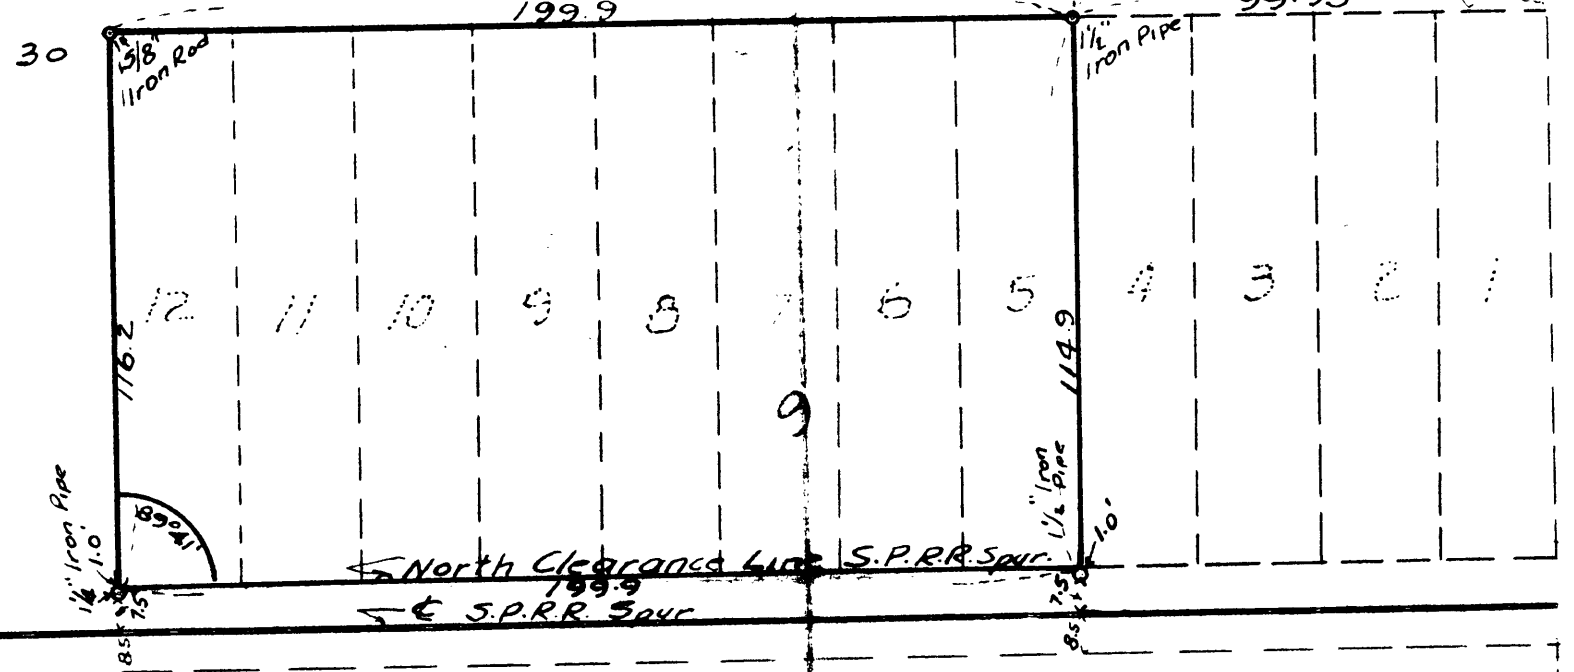 199.9
30
5/8"
Iron Rod
1½"
Iron Pipe
12 11 10 9 8 7 6 5 4 3 2 1
116.2
114.9
9
1½" Iron Pipe
1.0'
89°41'
1½" Iron
Pipe
1.0'
North Clearance Line S.P.R.R. Spur
199.9
7.5
7.5
℄ S.P.R.R. Spur
8.5
8.5